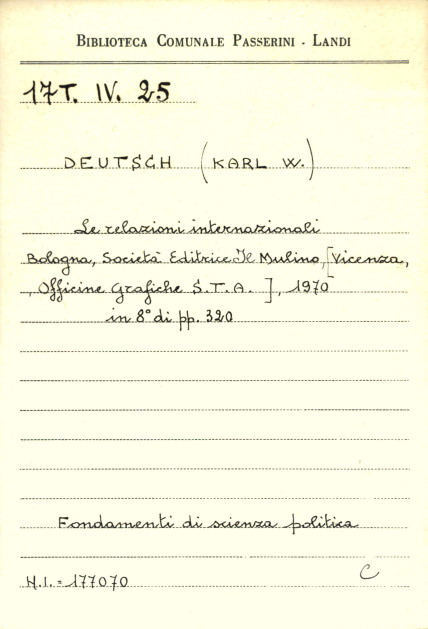 BIBLIOTECA COMUNALE PASSERINI - LANDI
17T. IV. 25
DEUTSCH (KARL W.)
Le relazioni internazionali
Bologna, Società Editrice Il Mulino, [Vicenza,
, Officine Grafiche S.T.A. ], 1970
in 8° di pp. 320
Fondamenti di scienza politica
N.I. = 177070
C